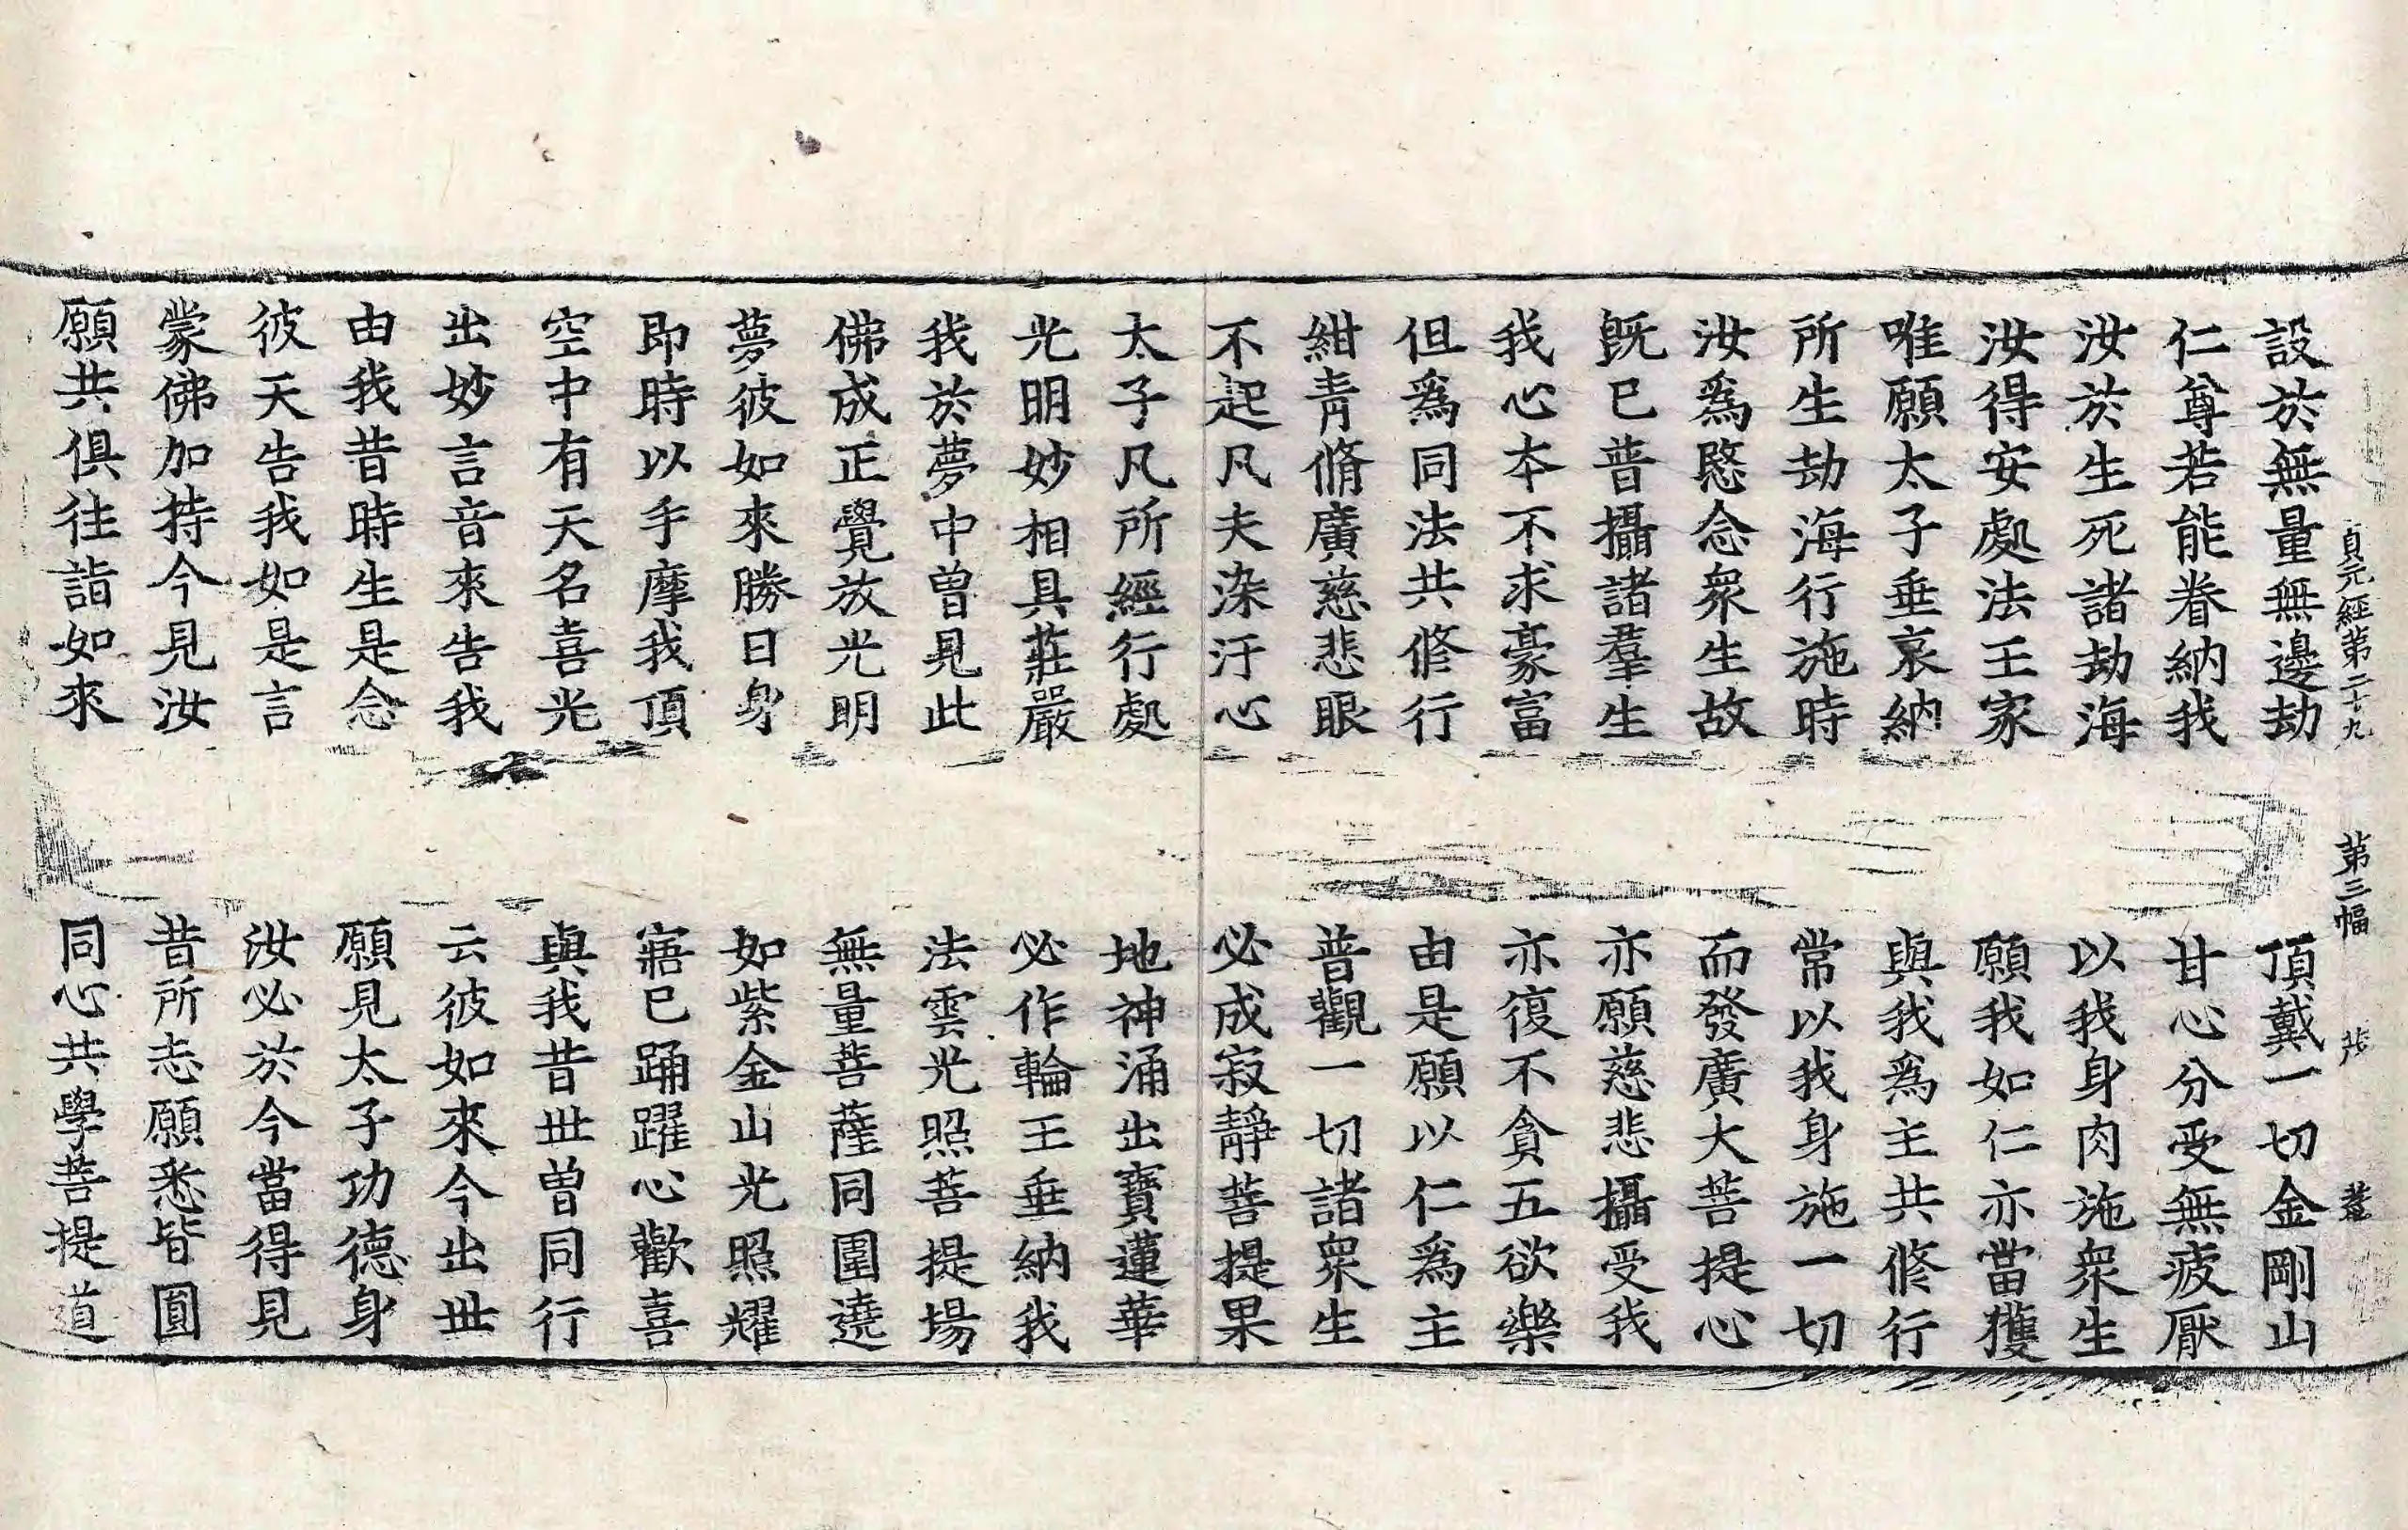 貞元經第二十九　第三幅　步
設於無量無邊劫　頂戴一切金剛山
仁尊若能眷納我　甘心分受無疲厭
汝於生死諸劫海　以我身肉施衆生
汝得安處法王家　願我如仁亦當獲
唯願太子垂哀納　與我爲主共修行
所生劫海行施時　常以我身施一切
汝爲愍念衆生故　而發廣大菩提心
旣已普攝諸羣生　亦願慈悲攝受我
我心本不求豪富　亦復不貪五欲樂
但爲同法共修行　由是願以仁爲主
紺靑脩廣慈悲眼　普觀一切諸衆生
不起凡夫染汙心　必成寂靜菩提果
太子凡所經行處　地神涌出寶蓮華
光明妙相具莊嚴　必作輪王垂納我
我於夢中曾見此　法雲光照菩提場
佛成正覺放光明　無量菩薩同圍遶
夢彼如來勝日身　如紫金山光照耀
即時以手摩我頂　寤已踊躍心歡喜
空中有天名喜光　與我昔世曾同行
出妙言音來告我　云彼如來今出世
由我昔時生是念　願見太子功德身
彼天告我如是言　汝必於今當得見
蒙佛加持今見汝　昔所志願悉皆圓
願共俱往詣如來　同心共學菩提道